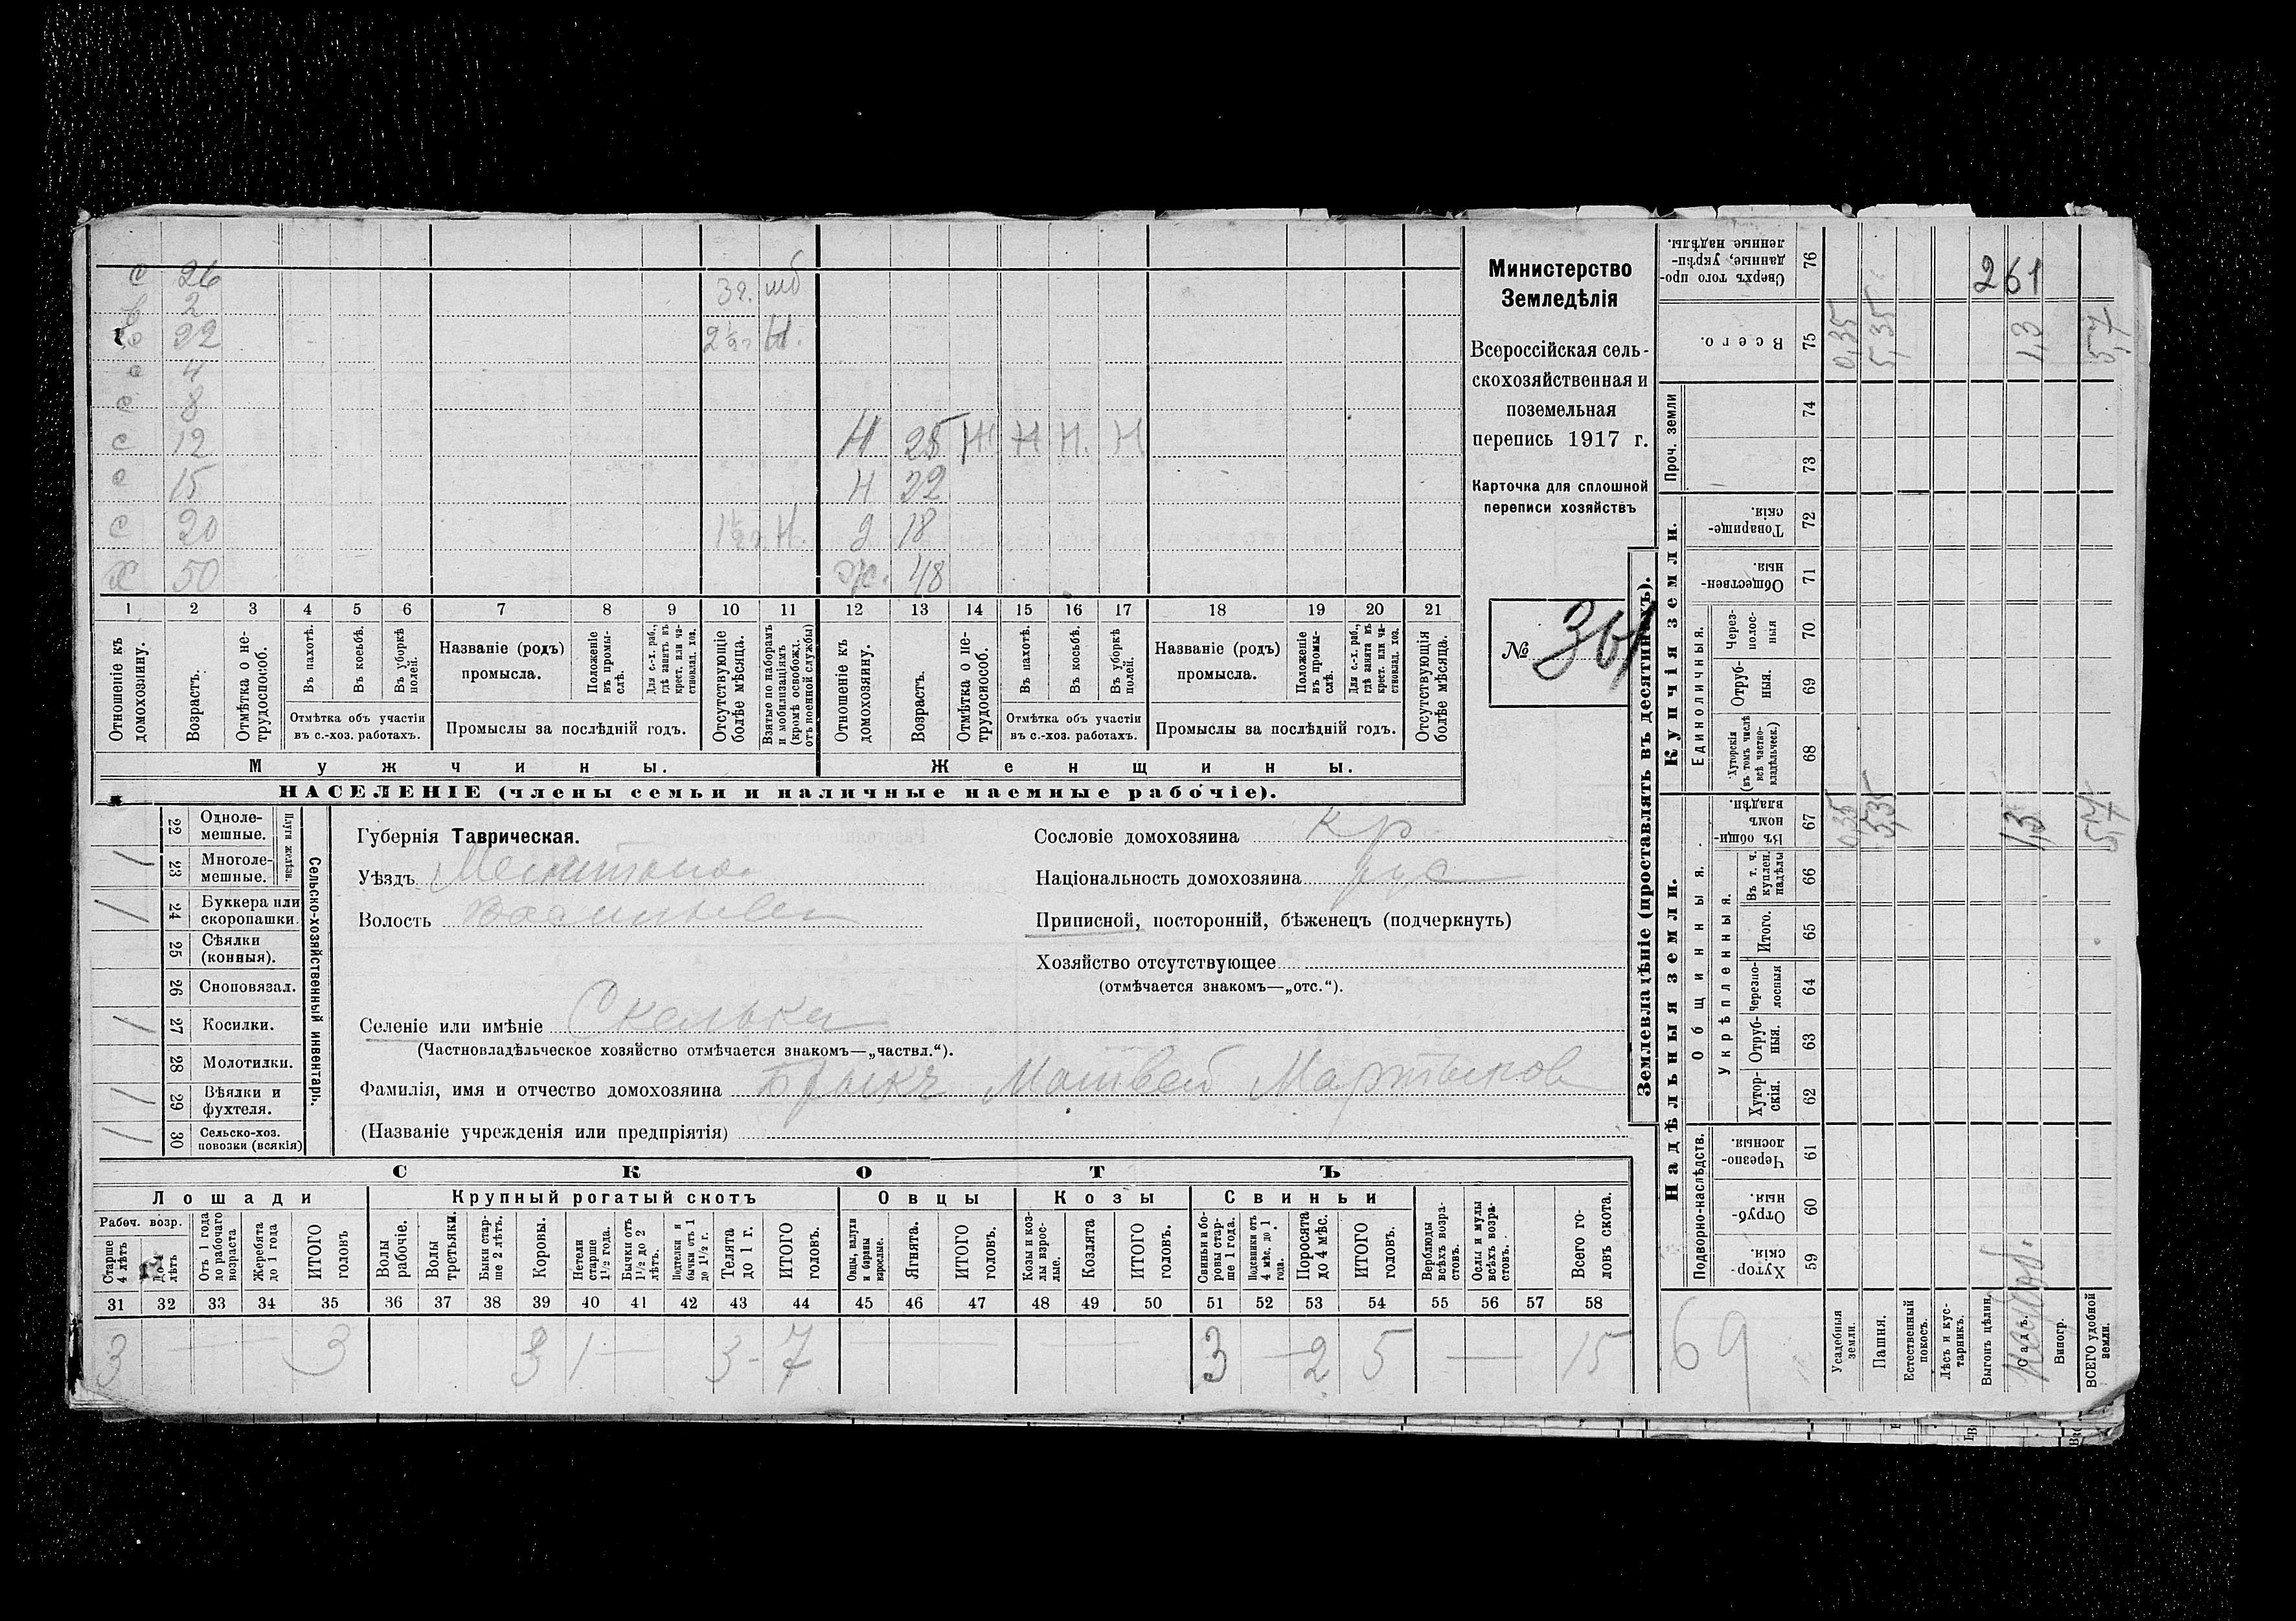 с 26 3 г. шб
2
22 2½ г Н.
с 4
с 8
с 12 Н 25 Н Н Н. Н
с 15 Н 22
с 20 1½ г. Н. д 18
Х 50 ж. 48
1 2 3 4 5 6 7 8 9 10 11 12 13 14 15 16 17 18 19 20 21
Отношеніе къ домохозяину.
Возрастъ.
Отмѣтка о не-трудоспособ.
Въ пахотѣ.
Въ косьбѣ.
Въ уборкѣ полей.
Отмѣтка объ участіи въ с.-хоз. работахъ.
Названіе (родъ) промысла.
Положеніе въ промы-слѣ.
Для с.-х. раб., гдѣ занятъ въ крест. или ча-стновлад. хоз.
Промыслы за послѣдній годъ.
Отсутствующіе болѣе мѣсяца.
Взятые по наборамъ и мобилизаціямъ (кромѣ освобожд. отъ военной службы)
Отношеніе къ домохозяину.
Возрастъ.
Отмѣтка о не-трудоспособ.
Въ пахотѣ.
Въ косьбѣ.
Въ уборкѣ полей.
Отмѣтка объ участіи въ с.-хоз. работахъ.
Названіе (родъ) промысла.
Положеніе въ промы-слѣ.
Для с.-х. раб., гдѣ занята въ крест. или ча-стновлад. хоз.
Промыслы за послѣдній годъ.
Отсутствующія болѣе мѣсяца.
Мужчины. Женщины.
НАСЕЛЕНІЕ (члены семьи и наличные наемные рабочіе).
Министерство
Земледѣлія
Всероссійская сель-
скохозяйственная и
поземельная
перепись 1917 г.
Карточка для сплошной
переписи хозяйствъ
№ 361
Сельско-хозяйственный инвентарь.
Плуги желѣзн.
22 Одноле-мешные.
/ 23 Многоле-мешные.
/ 24 Буккера или скоропашки.
25 Сѣялки (конныя).
26 Сноповязал.
/ 27 Косилки.
28 Молотилки.
/ 29 Вѣялки и фухтеля.
/ 30 Сельско-хоз. повозки (всякія)
Губернія Таврическая.
Уѣздъ
Волость
Селеніе или имѣніе Скелька
(Частновладѣльческое хозяйство отмѣчается знакомъ—„частвл.“).
Фамилія, имя и отчество домохозяина Брыкъ Матвей Мартынов
(Названіе учрежденія или предпріятія)
Сословіе домохозяина кр
Національность домохозяина рус
Приписной, посторонній, бѣженецъ (подчеркнуть)
Хозяйство отсутствующее
(отмѣчается знакомъ—„отс.“).
СКОТЪ
Лошади Крупный рогатый скотъ Овцы Козы Свиньи
Рабоч. возр.
Старше 4 лѣтъ
До 4 лѣтъ
Отъ 1 года до рабочаго возраста
Жеребята до 1 года
ИТОГО головъ
Волы рабочіе.
Волы третьяки.
Быки стар-ше 2 лѣтъ.
Коровы.
Нетели старше 1½ года.
Бычки отъ 1½ до 2 лѣтъ.
Подтелки и бычки отъ 1 до 1½ г.
Телята до 1 г.
ИТОГО головъ.
Овцы, валухи и бараны взрослые.
Ягнята.
ИТОГО головъ.
Козы и коз-лы взрос-лые.
Козлята
ИТОГО головъ.
Свиньи и бо-ровы стар-ше 1 года.
Подсвинки отъ 4 мѣс. до 1 года.
Поросята до 4 мѣс.
ИТОГО головъ.
Верблюды всѣхъ возра-стовъ.
Ослы и мулы всѣхъ возра-стовъ.
Всего го-ловъ скота.
31 32 33 34 35 36 37 38 39 40 41 42 43 44 45 46 47 48 49 50 51 52 53 54 55 56 57 58
3 — — 3 3 1 — 3 - 7 — — — 3 — 2 5 — 15
Землевладѣніе (проставлять въ десятинахъ).
Купчія земли.
Надѣльныя земли.
Сверхъ того про-данные, укрѣп-ленные надѣлы. 76 261
Всего. 75 0,35 5,35 1,3 5,7
Проч. земли
74
73
Товарище-скія. 72
Обществен-ныя. 71
Единоличныя.
Через-полос-ныя 70
Отруб-ныя. 69
Хуторскія (въ томъ числѣ всѣ частно-владѣльческ.) 68
Общинныя.
Въ общи-номъ владѣн. 67 0,35 5,35 1,3 5,7
Укрѣпленныя.
Въ т. ч. куплен. надѣлы 66
Итого. 65
Черезпо-лосныя 64
Отруб-ныя. 63
Хутор-скія. 62
Подворно-наслѣдств.
Черезпо-лосныя. 61
Отруб-ныя. 60
Хутор-скія. 59
69
Усадебныя земли.
Пашня.
Естественный покосъ.
Лѣсъ и кус-тарникъ.
Выгонъ цѣлин.
Садъ.
Виногр.
ВСЕГО удобной земли.